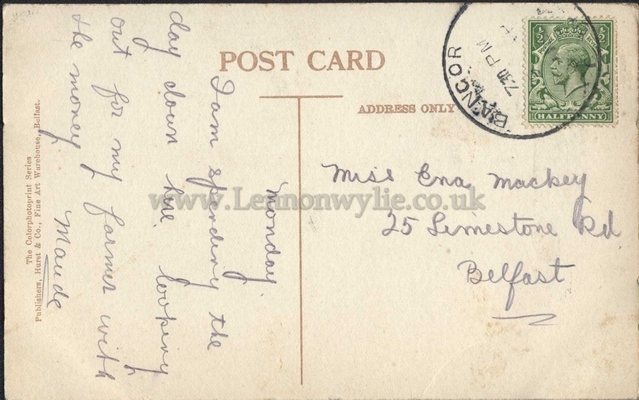 POST CARD
ADDRESS ONLY
BANGOR
7 30 PM
½
½
HALFPENNY
Monday.
I am spending the
day down here looking
out for my farmer with
the money
Maude
Miss Ena Mackey
25 Limestone Rd
Belfast
The Colorphotoprint Series
Publishers, Hurst & Co., Fine Art Warehouse, Belfast.
www.Lennonwylie.co.uk